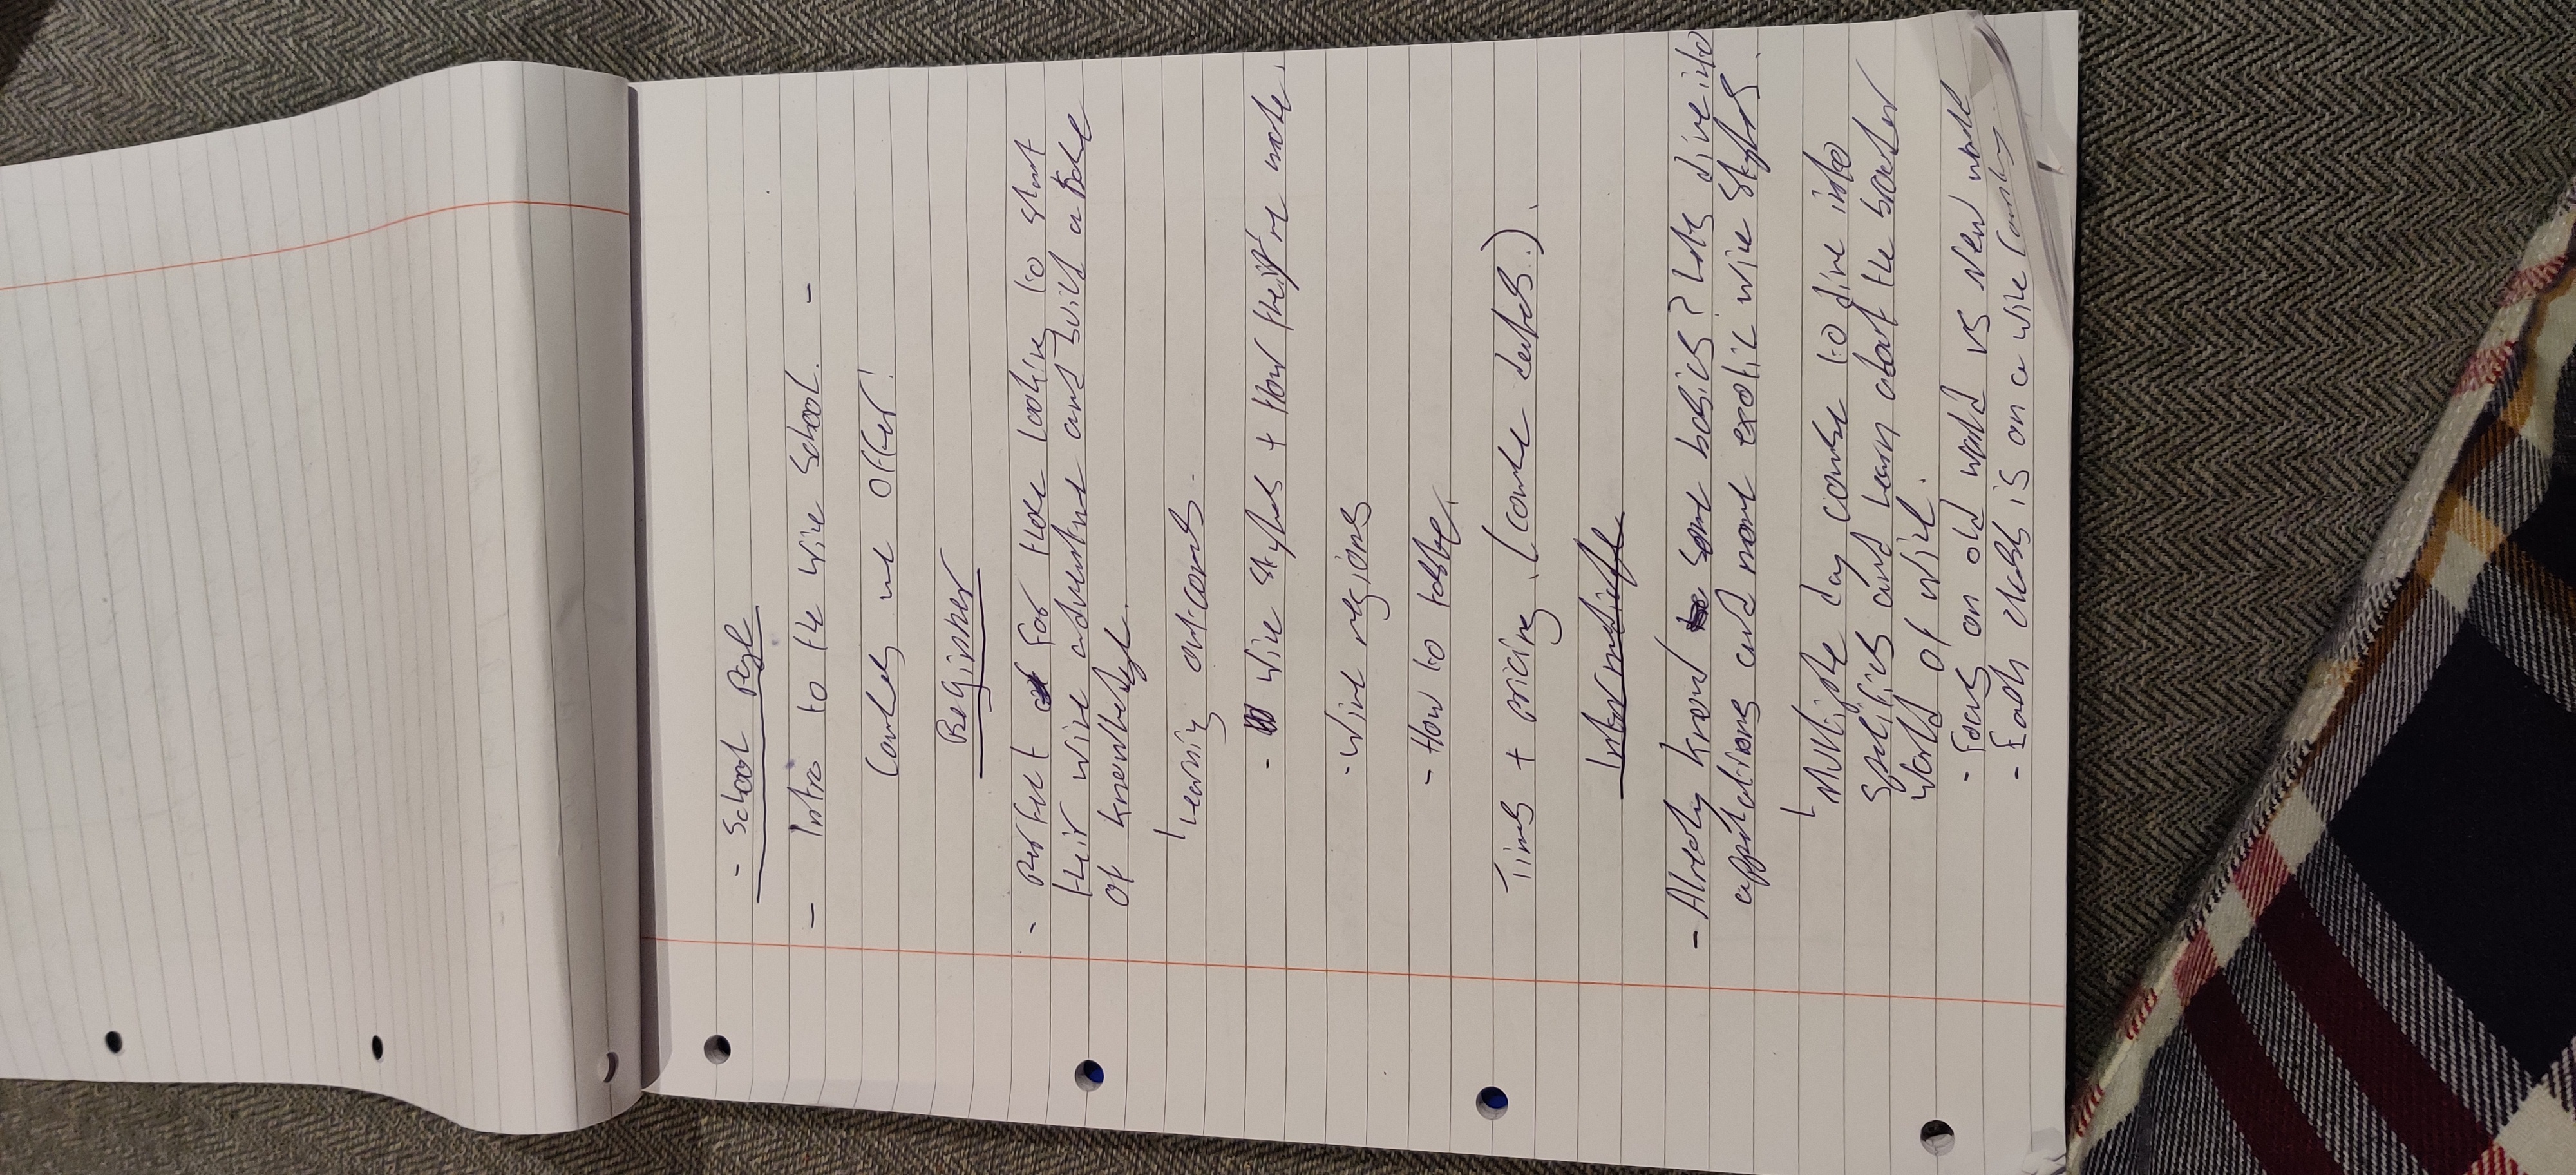 - School page
- Intro to the Wine School. -
Courses we offer!
Beginner
- Perfect for those looking to start
their wine adventure and build a base
of knowledge.
Learning outcomes.
- Wine styles + How they're made.
- Wine regions
- How to taste.
Times + pricing. (course dates.).
Intermediate
- Already know some basics? Lets dive into
appelations and more exotic wine styles.
Multiple day course to dive into
specifics and learn about the broader
world of wine.
- Focus on old world vs New world
- Each class is on a wine country.